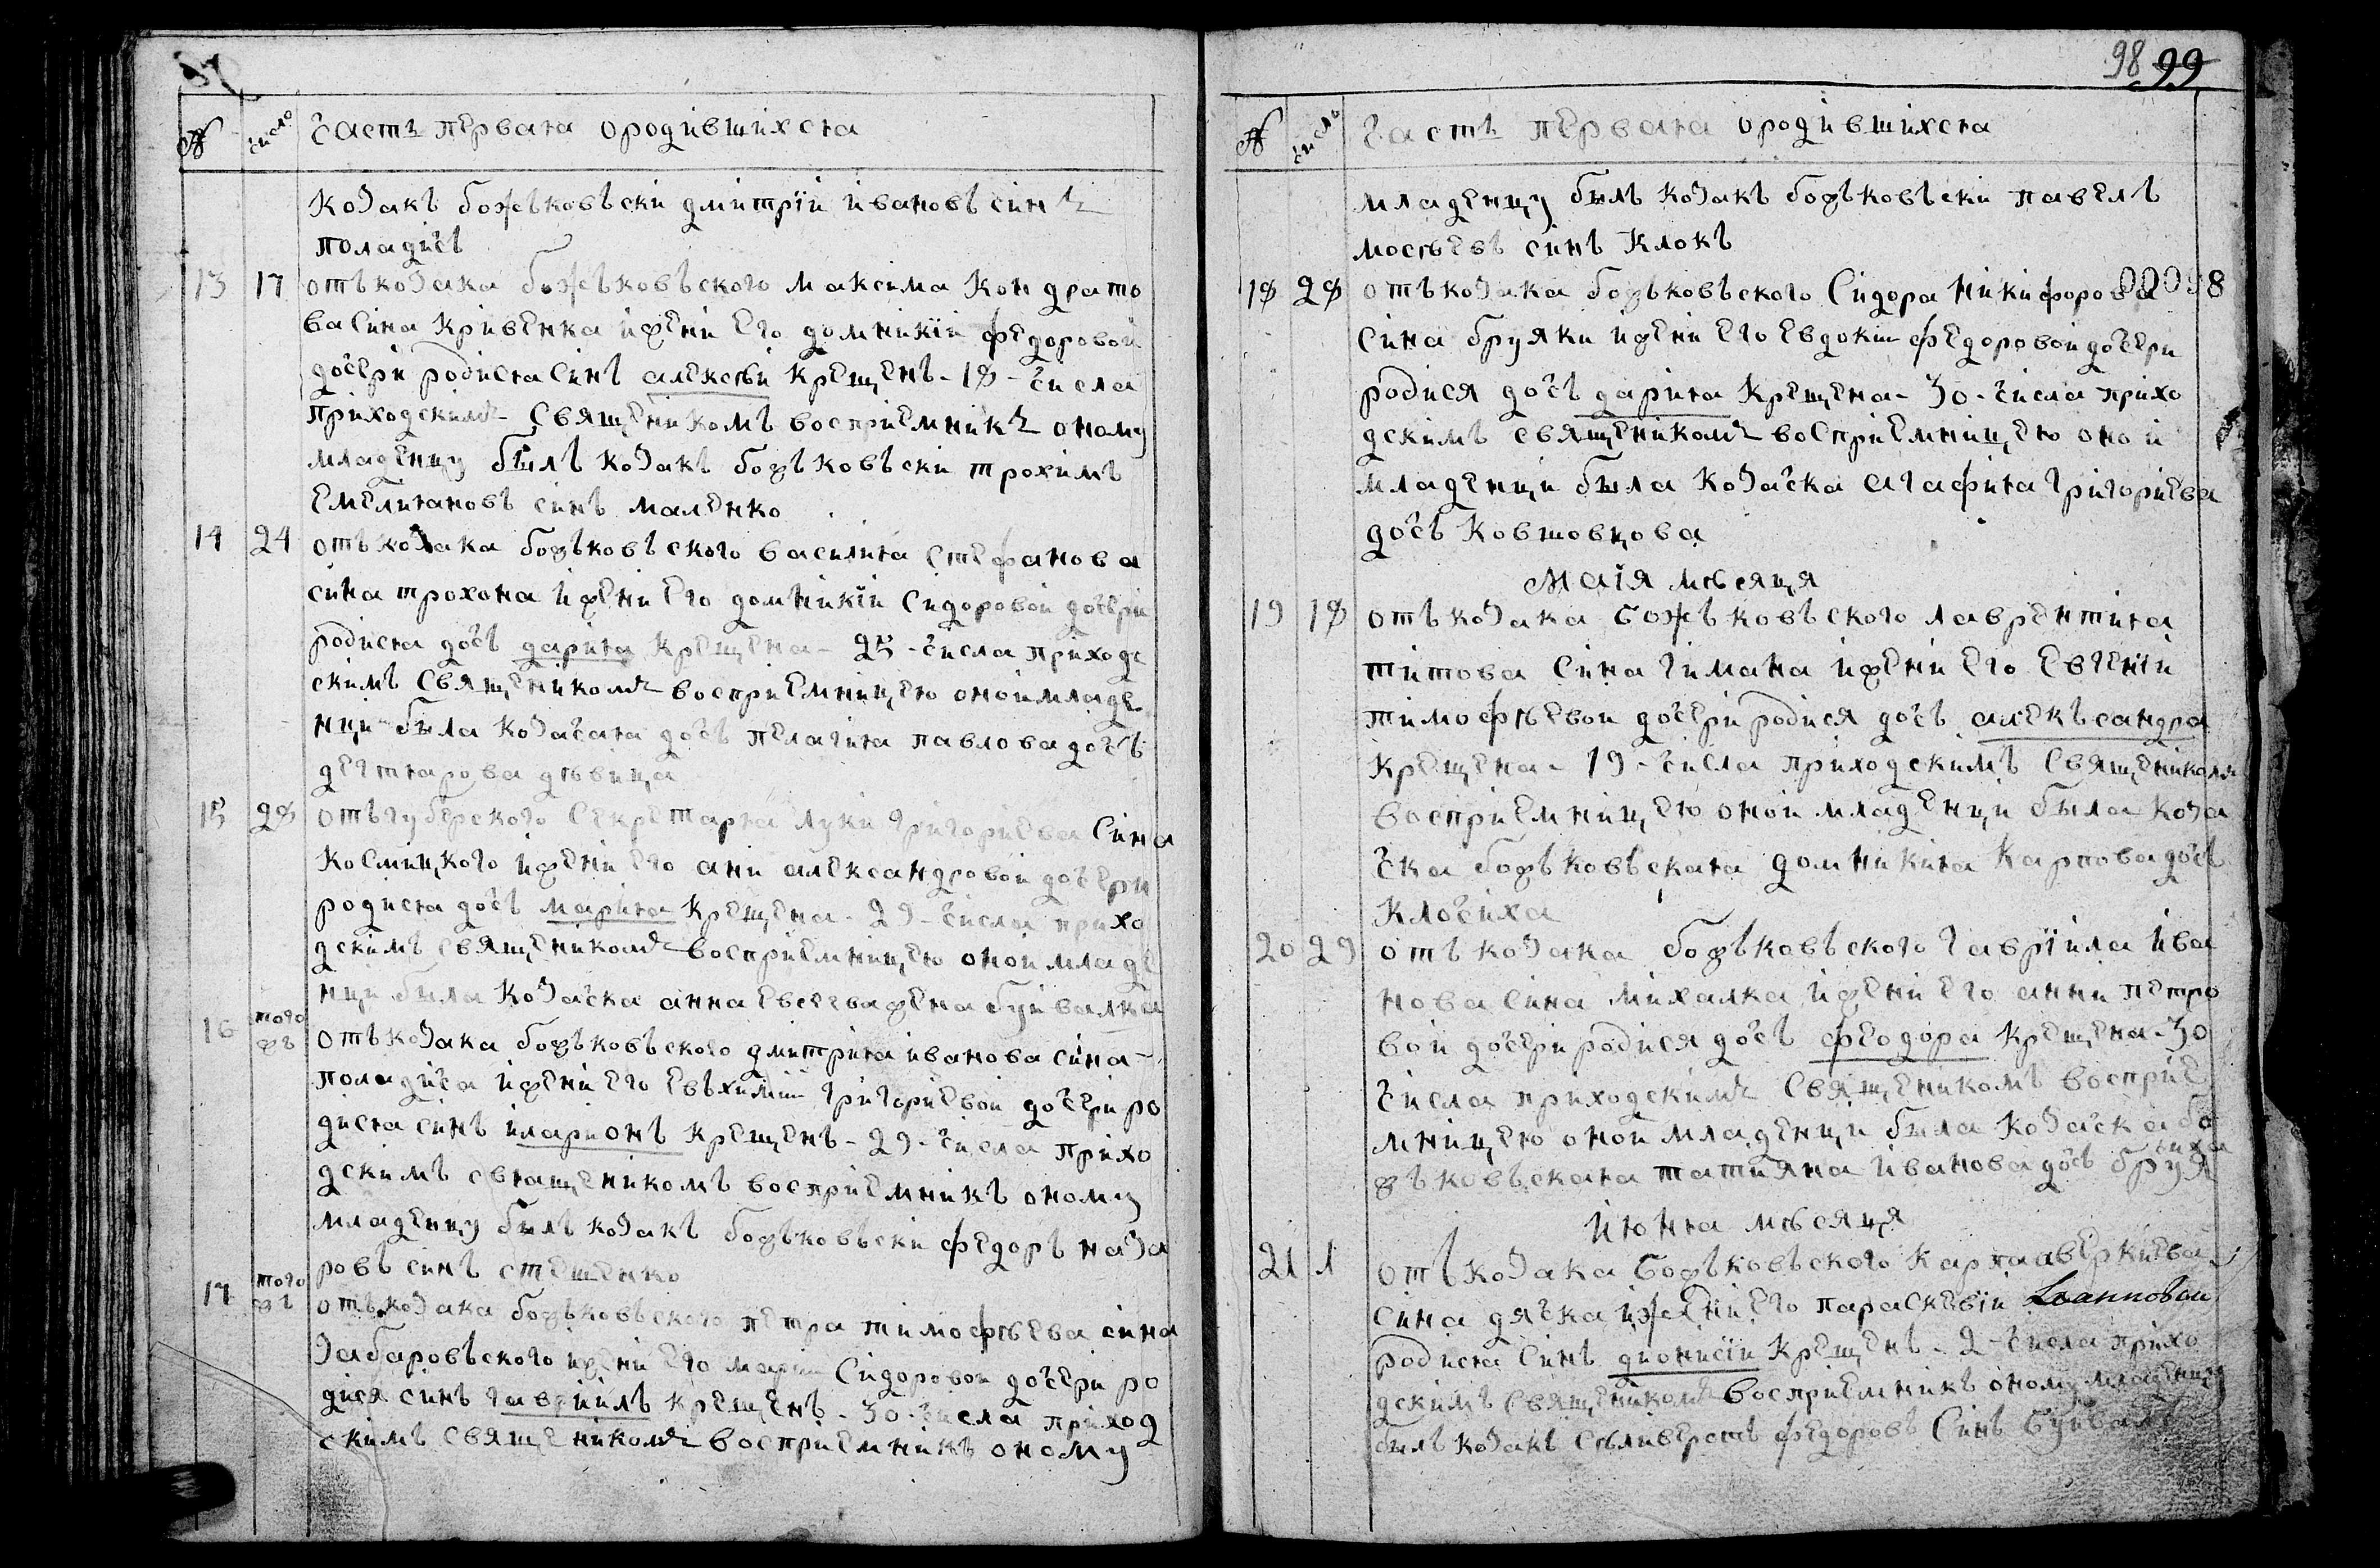 № число Часть первая ородившихся
козакъ божъковъски дмитрїи ивановъ синъ
поладичъ
13 17 отъ козака божъковъского максима кондрато
ва сина кривенка ижени его домникїи федоровои
дочери родися синъ алексѣи крещенъ - 18 - числа
приходскимъ священикомъ восприемникъ оному
младенцу былъ козакъ божъковъски трохимъ
емелияновъ синъ маленко
14 24 отъ козака божъковъского василия стефанова
сина трохона ижени его домникїи сидоровои дочери
родися дочъ дария крещена - 25 - числа приходс
скимъ священикомъ восприемницею оной младе
нци была козачая дочъ пелагия павлова дочъ
дегтярова дѣвица
15 28 отъ губерского секретаря луки григориева сина
космицкого ижени его ани александровои дочери
родися дочъ мария крещена - 29 - числа прихо
дскимъ священикомъ восприемницею оной младе
нци была козачка анна евсеева жена буйвалка
16 того жъ отъ козака божъковъского дмитрия иванова сина
поладича ижени его евъхимїи григориевои дочери ро
дися синъ иларионъ крещенъ - 29 - числа прихо
дскимъ священикомъ восприемникъ оному
младенцу былъ козакъ божъковъски федоръ наза
ровъ синъ стешенко
17 того жъ отъ козака божъковъского петра тимофѣева сина
забаровъского ижени его марїи сидоровои дочери ро
дися синъ гаврїилъ крещенъ - 30 - числа приход
скимъ священикомъ восприемникъ оному
98 99
№ число Часть первая ородившихся
младенцу былъ козакъ божъковъски павелъ
мосѣевъ синъ клокъ
00098
18 28 отъ козака божъковъского сидора никифорова
сина бруяки ижени его евдокїи федоровои дочери
родися дочъ дария крещена - 30 - числа прихо
дскимъ священикомъ восприемницею оной
младенци была козачка агафия григориева
дочъ ковшовцова
маїя мѣсяця
19 18 отъ козака божъковъского лаврентия
титова сина гимана ижени его евгенїи
тимофѣевои дочери родися дочъ алекъсандра
крещена - 19 - числа приходскимъ священикомъ
восприемницею оной младенци была коза
чка божъковъская домникия карпова дочъ
клочиха
20 29 отъ козака божъковъского гаврїила ива
нова сина михалка ижени его анни петро
вои дочери родися дочъ феодора крещена - 30
числа приходскимъ священикомъ восприе
мницею оной младенци была козачка бо
жъковъская татияна иванова дочъ бруя
чиха
июня мѣсяця
21 1 отъ козака божъковъского карпа аверкиева
сина дячка ижени его параскевїи Іоанновои
родися синъ дионисїи крещенъ - 2 - числа прихо
дскимъ священикомъ восприемникъ оному младенцу
былъ козакъ сѣливерстъ федоровъ синъ буйвалъ